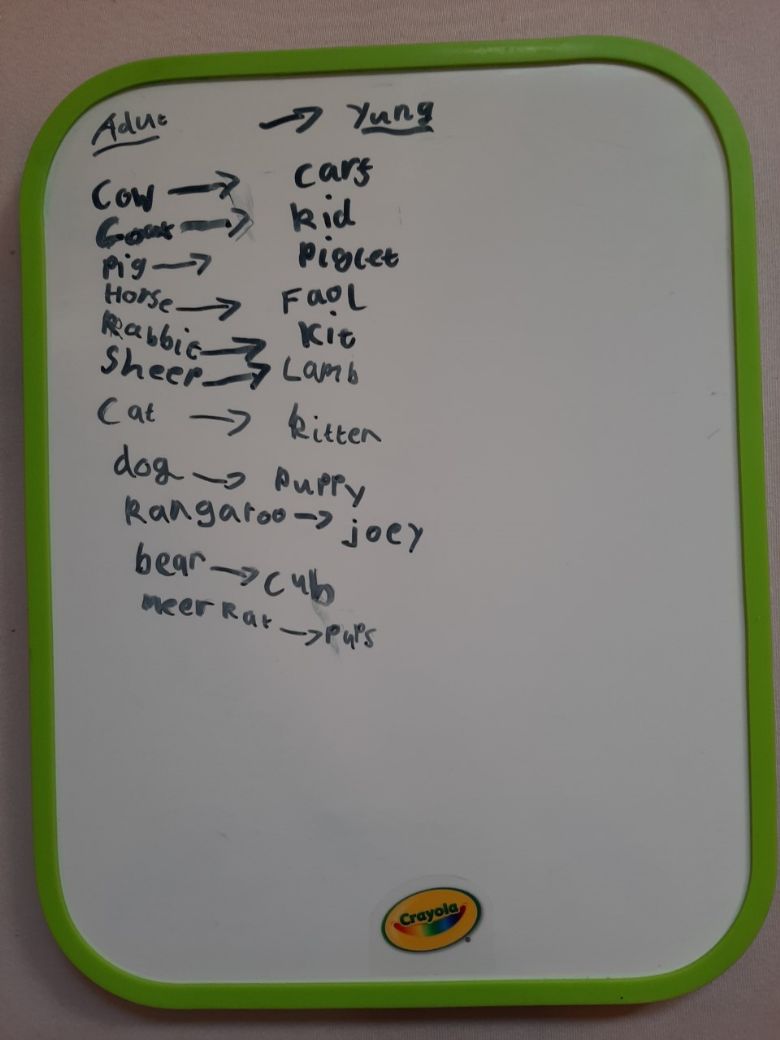 Adut → Yung
Cow → Carf
Goat → kid
Pig → Piglet
Horse → Faol
Rabbit → Kit
Sheep → Lamb
Cat → kitten
dog → Puppy
kangaroo → joey
bear → Cub
meer kat → Pups
Crayola